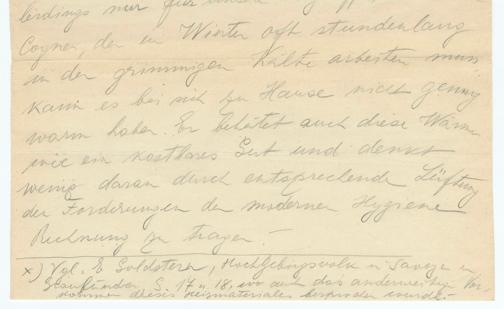 lerdings nur für unsere
Cogner, der im Winter oft stundenlang
in der grimmigen Kälte arbeiten muss
kann es bei sich zu Hause nicht genug
warm haben. Er behütet auch diese Wärme
wie ein kostbares Gut und denkt
wenig daran durch entsprechende Lüftung
den Forderungen der modernen Hygiene
Rechnung zu tragen.–
x) Vgl. E Goldstern, Hochgebirgsvolk in Savoyen u.
Graubünden S. 17 u. 18, wo auch das anderweitige Vor-
kommen dieses Heizmateriales besprochen wurde.–